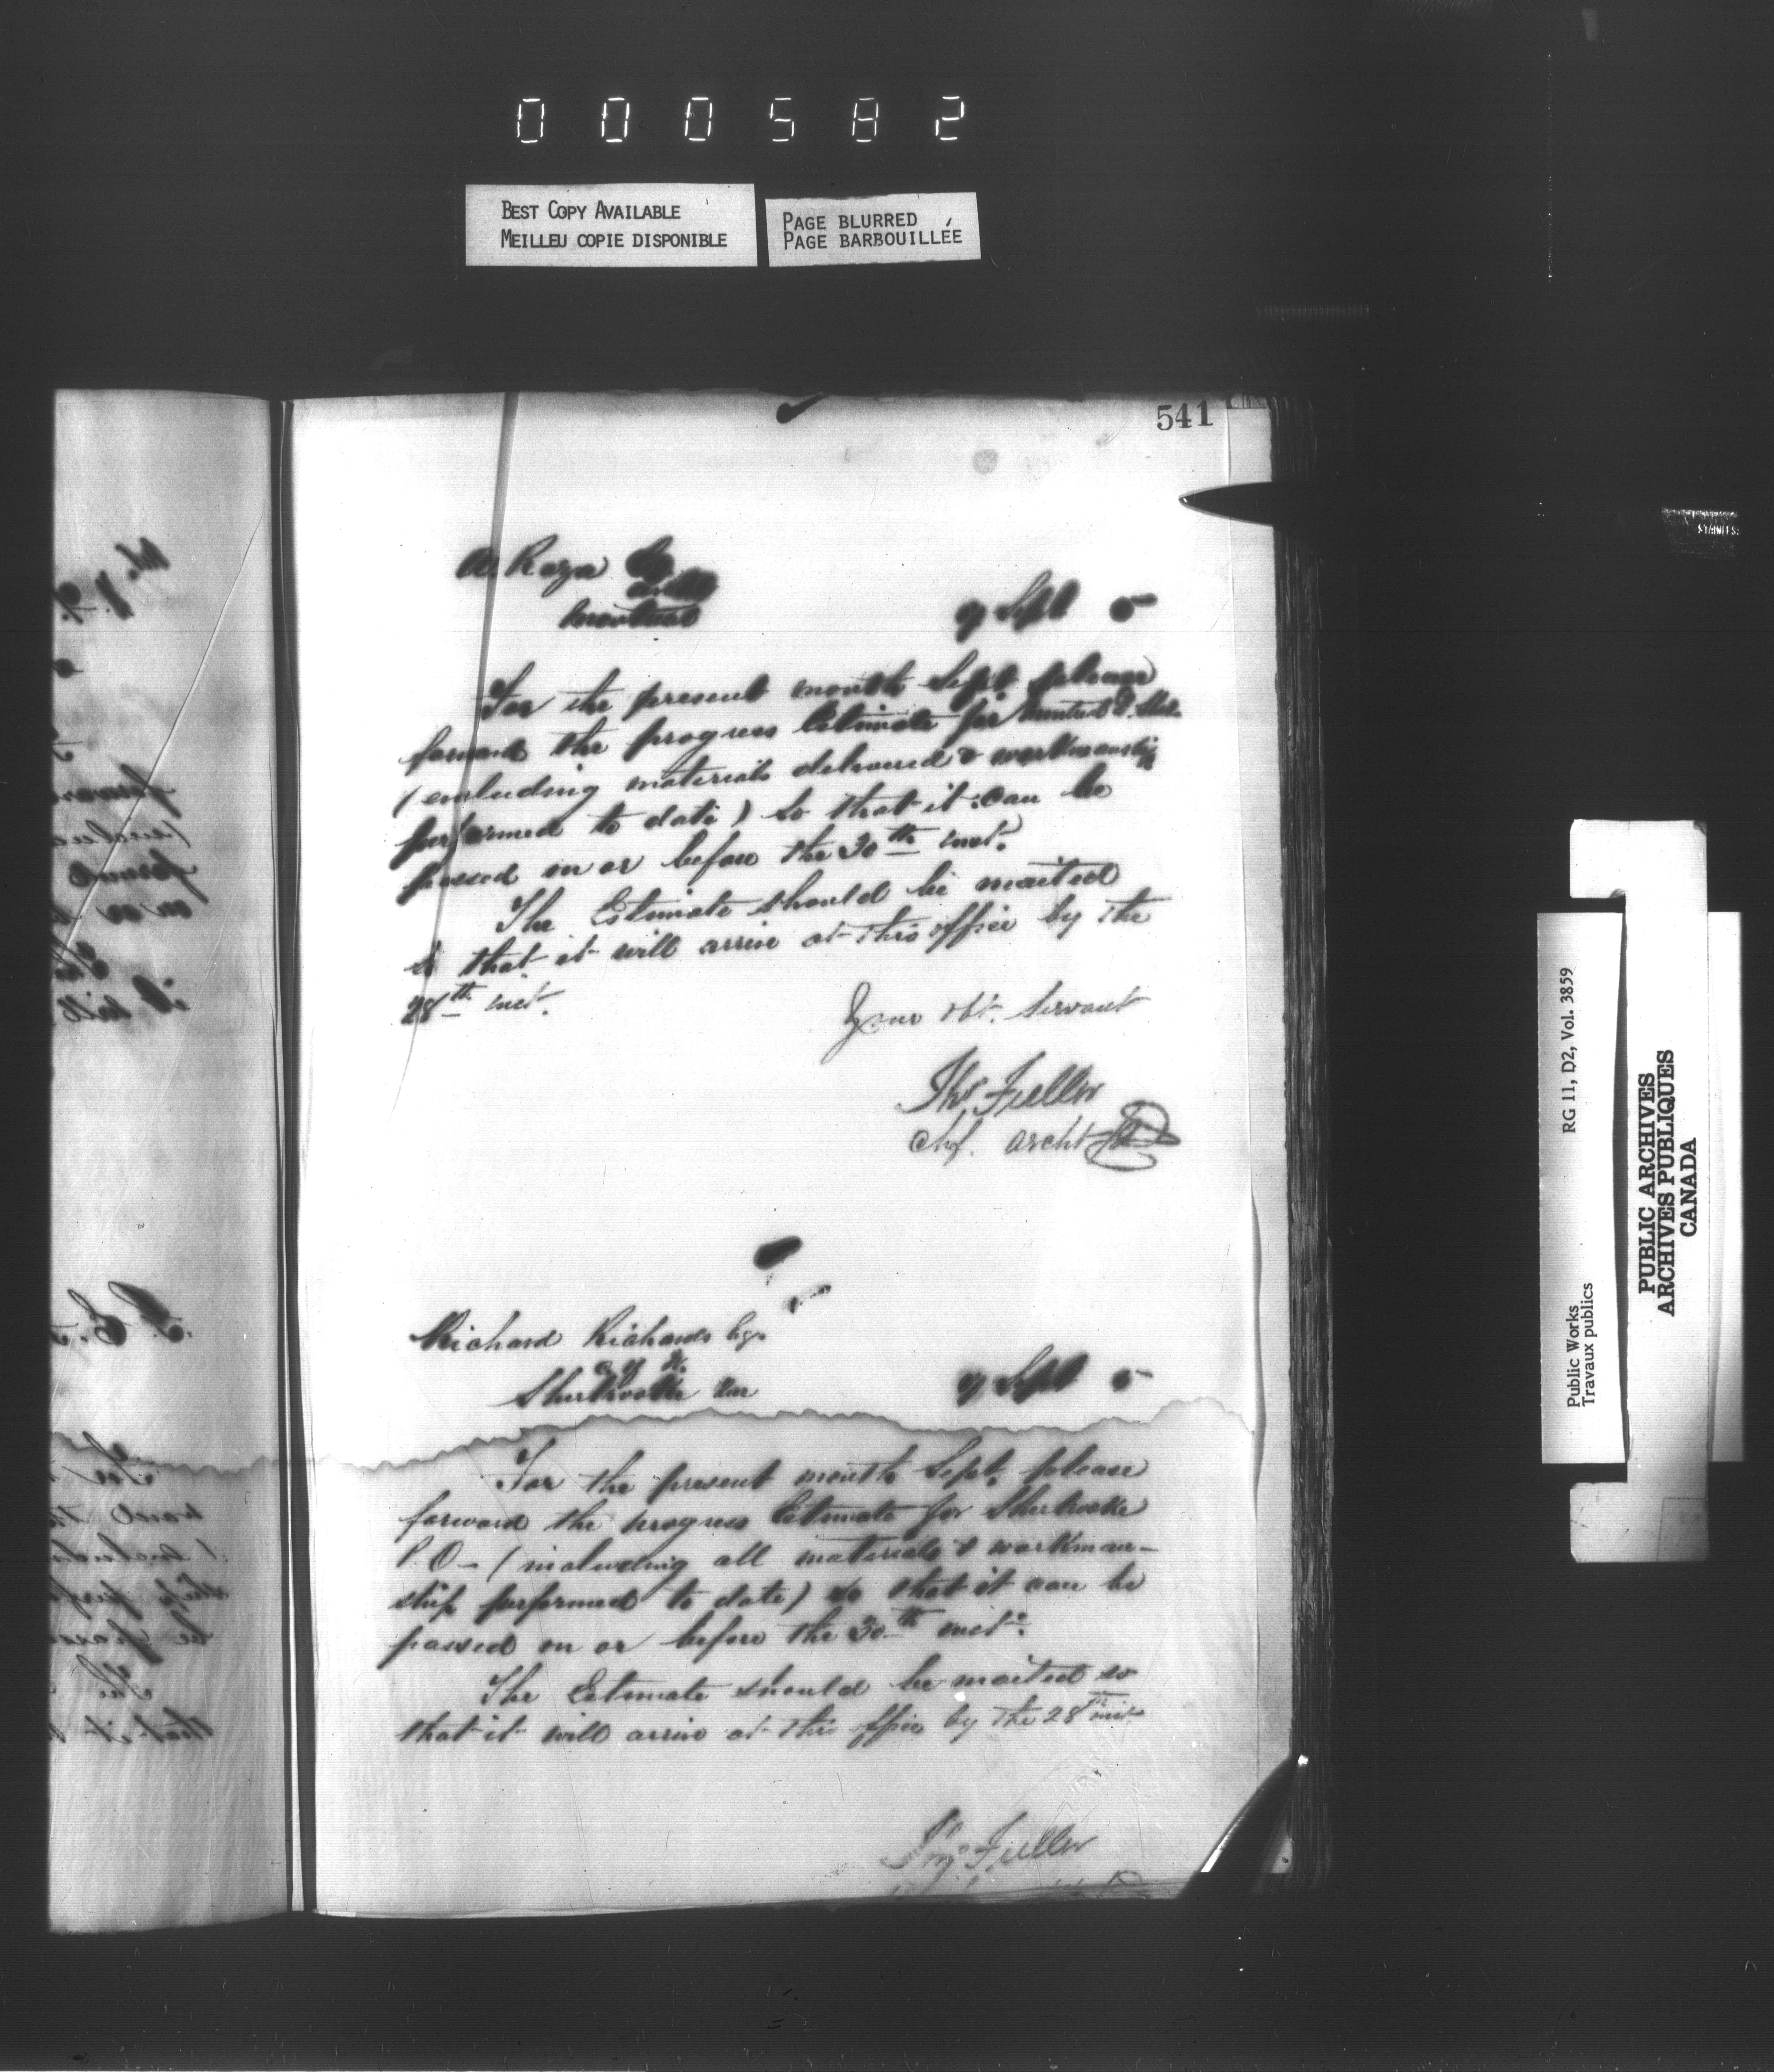 000582
BEST COPY AVAILABLE
MEILLEU COPIE DISPONIBLE
PAGE BLURRED
PAGE BARBOUILLÉE
541
A. Raza Esq
Archt
Montreal
9 Sept 5
For the present month Sept. please
forward the progress Estimate for
(including materials delivered & workmanship
performed to date) so that it can be
passed on or before the 30th inst.
The Estimate should be mailed
so that it will arrive at this office by the
28th inst.
Your obt. Servant
Thos Fuller
Chf. Archt
Richard Richards Esq.
Sherbrooke Que
9 Sept 5
For the present month Sept. please
forward the progress Estimate for Sherbrooke
P.O - (including all materials & workman-
ship performed to date) so that it can be
passed on or before the 30th inst.
The Estimate should be mailed so
that it will arrive at this office by the 28th inst.
Thos Fuller
RG 11, D2, Vol. 3859
Public Works
Travaux publics
PUBLIC ARCHIVES
ARCHIVES PUBLIQUES
CANADA